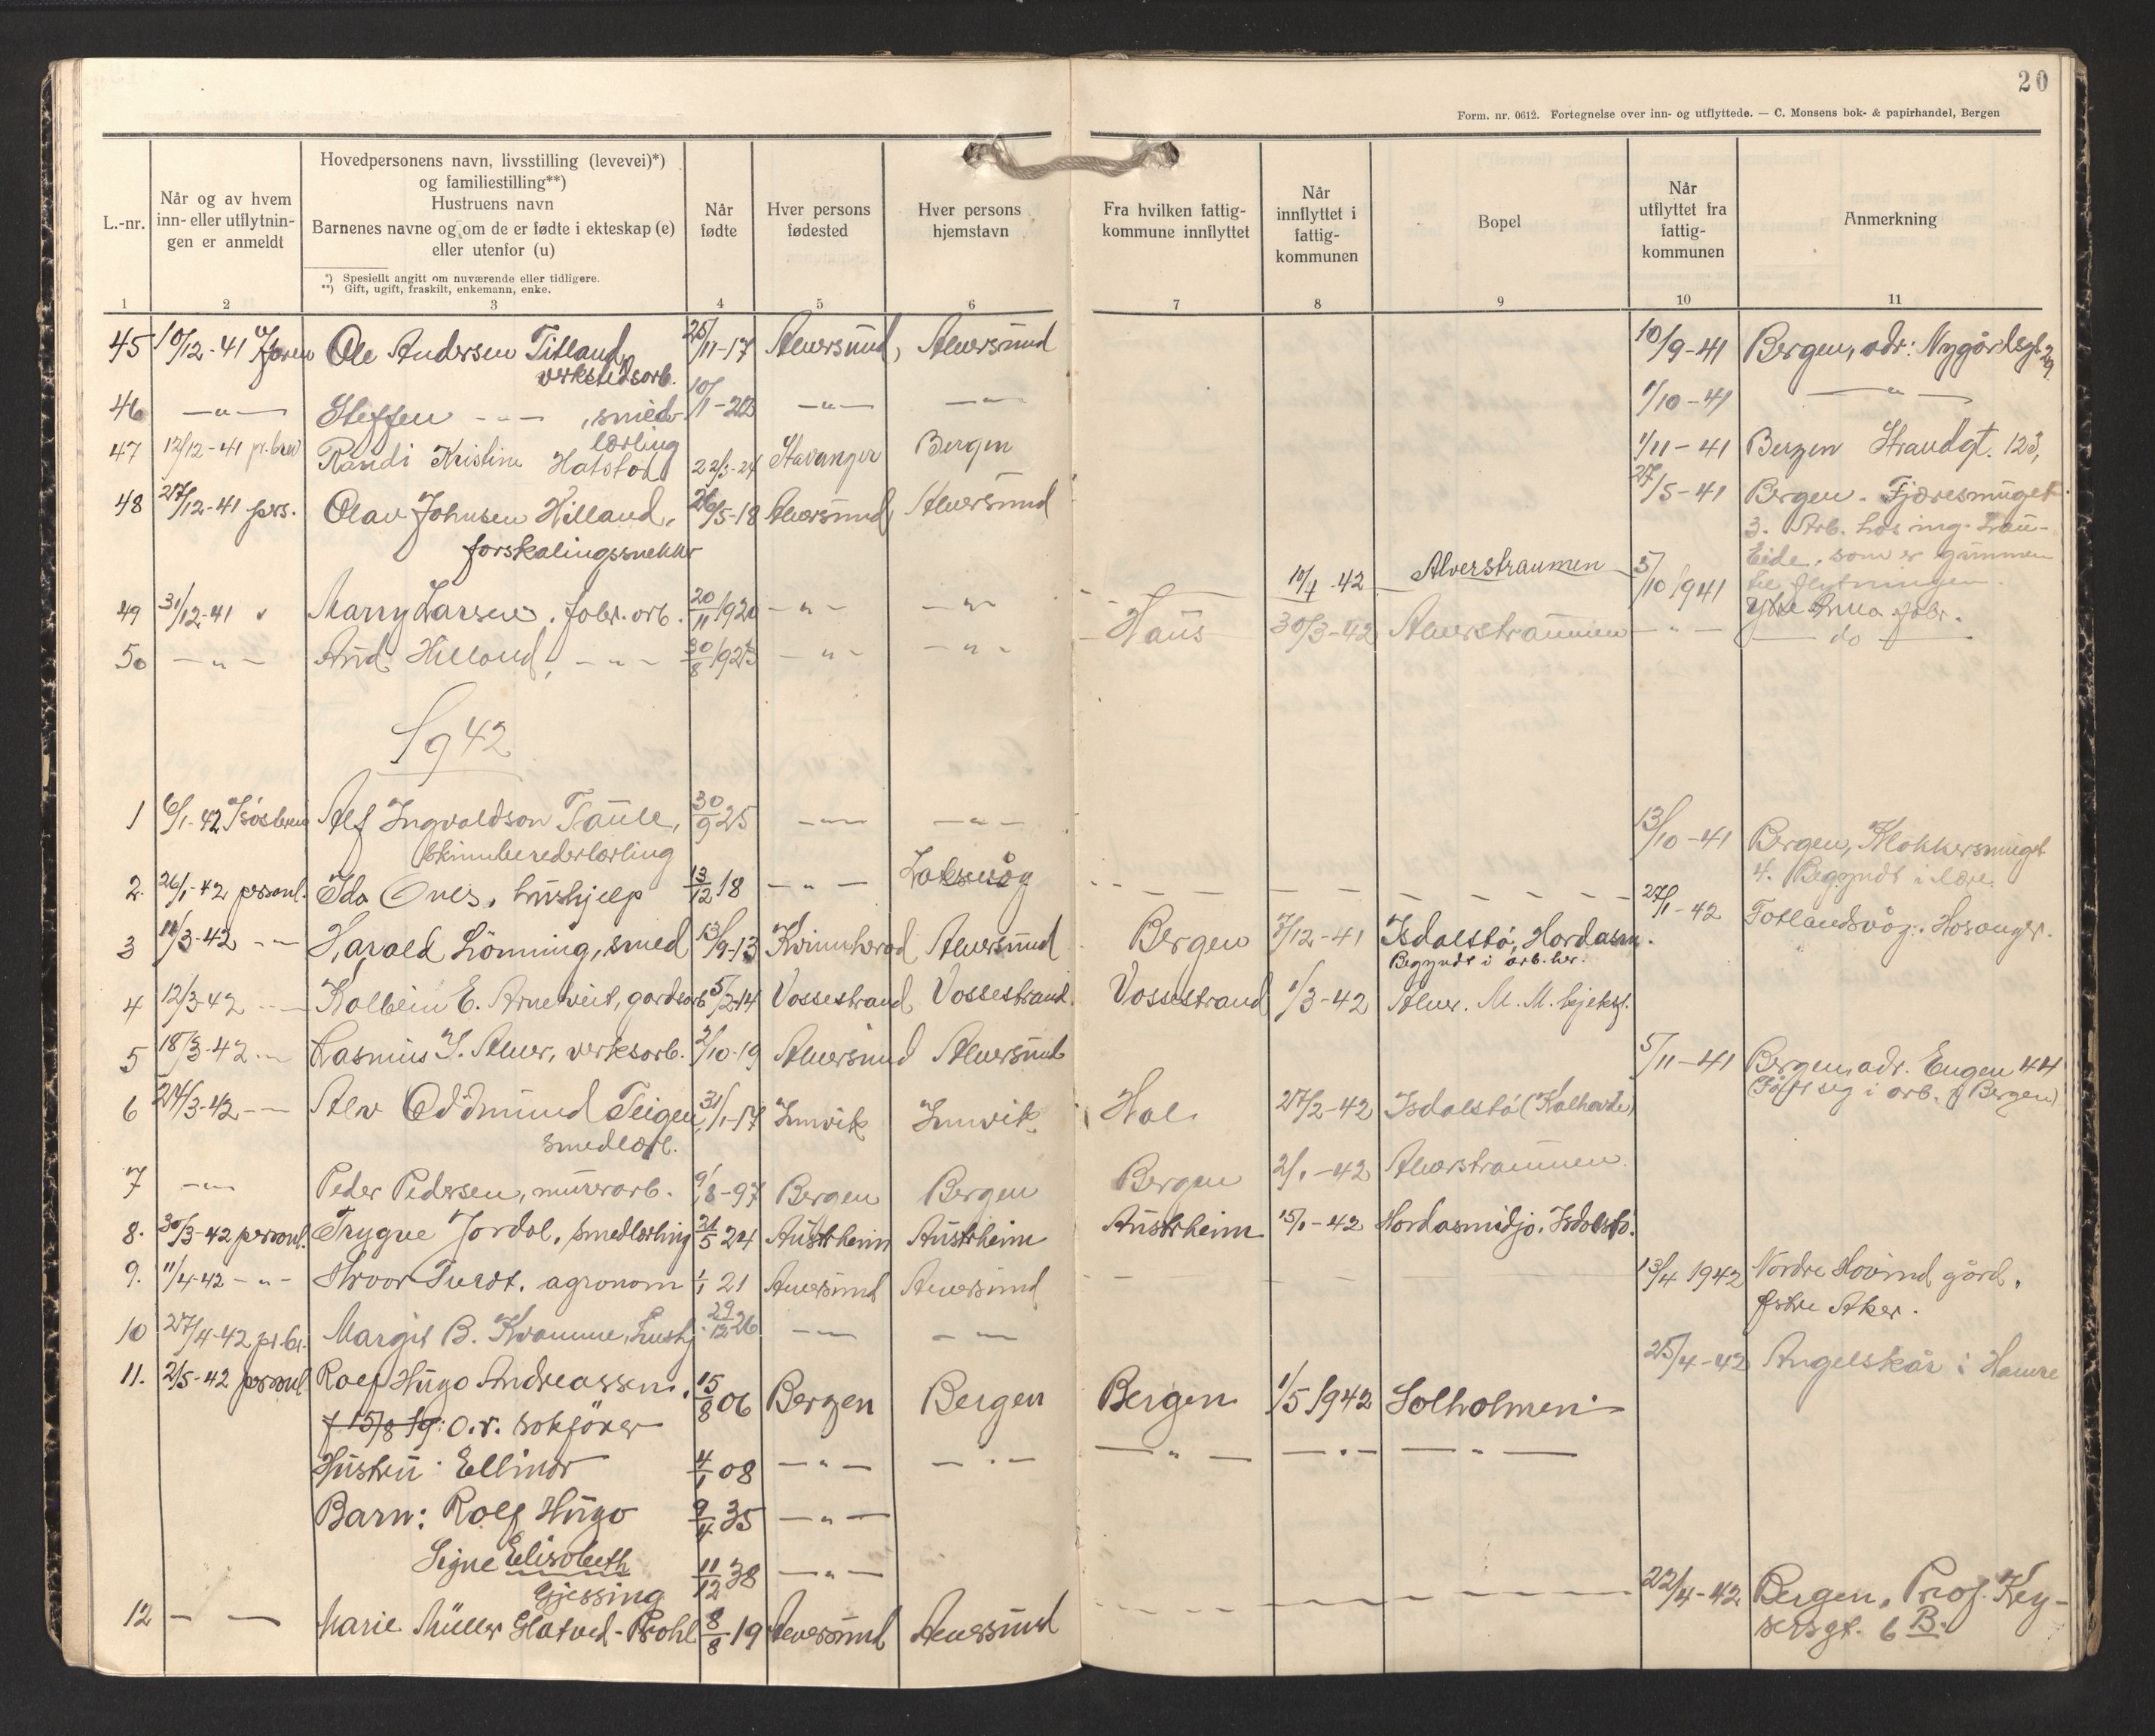 20
Form. nr. 0612. Fortegnelse over inn- og utflyttede. — C. Monsens bok- & papirhandel, Bergen
L.-nr.
Når og av hvem
inn- eller utflytnin-
gen er anmeldt
Hovedpersonens navn, livsstilling (levevei)*)
og familiestilling**)
Hustruens navn
Barnenes navne og om de er fødte i ekteskap (e)
eller utenfor (u)
*) Spesielt angitt om nuværende eller tidligere.
**) Gift, ugift, fraskilt, enkemann, enke.
Når
fødte
Hver persons
fødested
Hver persons
hjemstavn
Fra hvilken fattig-
kommune innflyttet
Når
innflyttet i
fattig-
kommunen
Bopel
Når
utflyttet fra
fattig-
kommunen
Anmerkning
1 2 3 4 5 6 7 8 9 10 11
45 10/12-41 Ole Andersen Titland, 25/11-17 Alversund, Alversund 10/9-41 Bergen, adr: Nygårdsgt. 29
verkstedsorb.
46 —"— Steffen —"—, smed- 10/1-22 —"— —"— 1/10-41 —"—
lærling
47 12/12-41 pr. brev Randi Kristine Hatstod 22/3-24 Stavanger Bergen 1/11-41 Bergen Strandgt. 123,
48 27/12-41 prs. Olav Johnsen Hilland, 26/5-18 Alversund Alversund 27/5-41 Bergen. Fjæresmuget
forskalingssnekkr 3. Arb. hos ing. Lau-
Eide, som er
til flytningen.
49 31/12-41 " Marry Larsen. fabr. orb. 20/11 1920 —"— —"— 10/4-42 Alverstraumen 5/10 1941 Ytre Arna fabr.
50 —"— Aud Hilland, —"— 30/8 1923 —"— —"— Haus 30/3-42 Alverstraumen —"— — do —
1942
1 6/1-42 Alf Ingvaldson Taule, 30/9 25 —"— —"— 13/10-41 Bergen, Klokkersmuget
skinnberederlærling 4. Begyndt i lære.
2. 26/1-42 personl. Ida Ones, hushjelp 13/12 18 —"— Laksevåg 27/1-42 Totlandsvåg. Hosanger.
3 11/3-42 —"— Harald Lönning, smed 13/9-13 Kvinnherad Alversund Bergen 7/12-41 Isdalstø, Hordasm.
Begyndt i arb. her.
4 12/3-42 —"— Kolbein E. Arnetveit, gardsarb 5/2-14 Vossestrand Vossestrand Vossestrand 1/3-42 Alver. M. M.
5 18/3-42 —"— Rasmus I. Alver, verksorb. 2/10-19 Alversund Alversund 5/11-41 Bergen adr. Engen 44
(Fått seg i arb. i Bergen)
6 24/3-42 —"— Alv Oddmund Teigen, 31/1-17 Innvik Innvik Hol 27/2-42 Isdalstø
smedlærl.
7 —"— Peder Pedersen, murerarb. 9/8-97 Bergen Bergen Bergen 2/1-42 Alverstraumen
8. 30/3-42 personl. Trygve Jordal, smedlærling 21/5 24 Austrheim Austrheim Austrheim 15/1-42 Hordasmidjo. Isdalstø.
9. 11/4-42 —"— Hroar Tveit. agronom 1/1 21 Alversund Alversund 13/4 1942 Nordre Hovind gård.
Østre Aker.
10 27/4-42 pr. br. Margit B. Kvamme, hushj. 29/12 26 —"— —"— 25/4-42 Angelskår i Hamre
11. 2/5-42 personl. Rolf Hugo Andreassen, 15/8 06 Bergen Bergen Bergen 1/5 1942 Solholmen
f 15/8 19: O.r. sokfører
Hustru: Ellinor 4/1 08 —"— —"— —"— —"— —"—
Barn: Rolf Hugo 9/4 35 —"—
Signe Elisobeth 11/12 38 —"—
Gjessing
12 — — Marie Müller Hatved-Prohl 8/8-19 Alversund Alversund 22/4-42 Bergen, Prof. Key-
sersgt. 6 B.